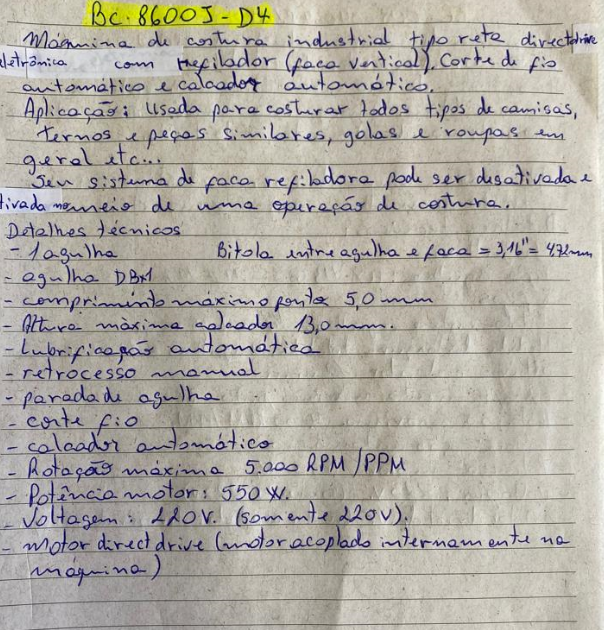 BC. 8600J - D4
Máquina de costura industrial tipo reta direct drive
eletrônica com refilador (faca vertical). Corte de fio
automático e calcador automático.
Aplicação: Usada para costurar todos tipos de camisas,
ternos e peças similares, golas e roupas em
geral etc...
Seu sistema de faca refiladora pode ser desativada e
tivada no meio de uma operação de costura.
Detalhes técnicos
- 1 agulha Bitola entre agulha e faca = 3,16" = 4,72mm
- agulha DBx1
- comprimento máximo ponto 5,0 mm
- Altura màxima calcador 13,0 mm.
- Lubrificação automática
- retrocesso manual
- parada de agulha
- corte fio
- calcador automático
- Rotação máxima 5.000 RPM/PPM
- Potência motor: 550 W.
- Voltagem: 220V. (somente 220V).
- motor direct drive (motor acoplado internamente na
máquina)